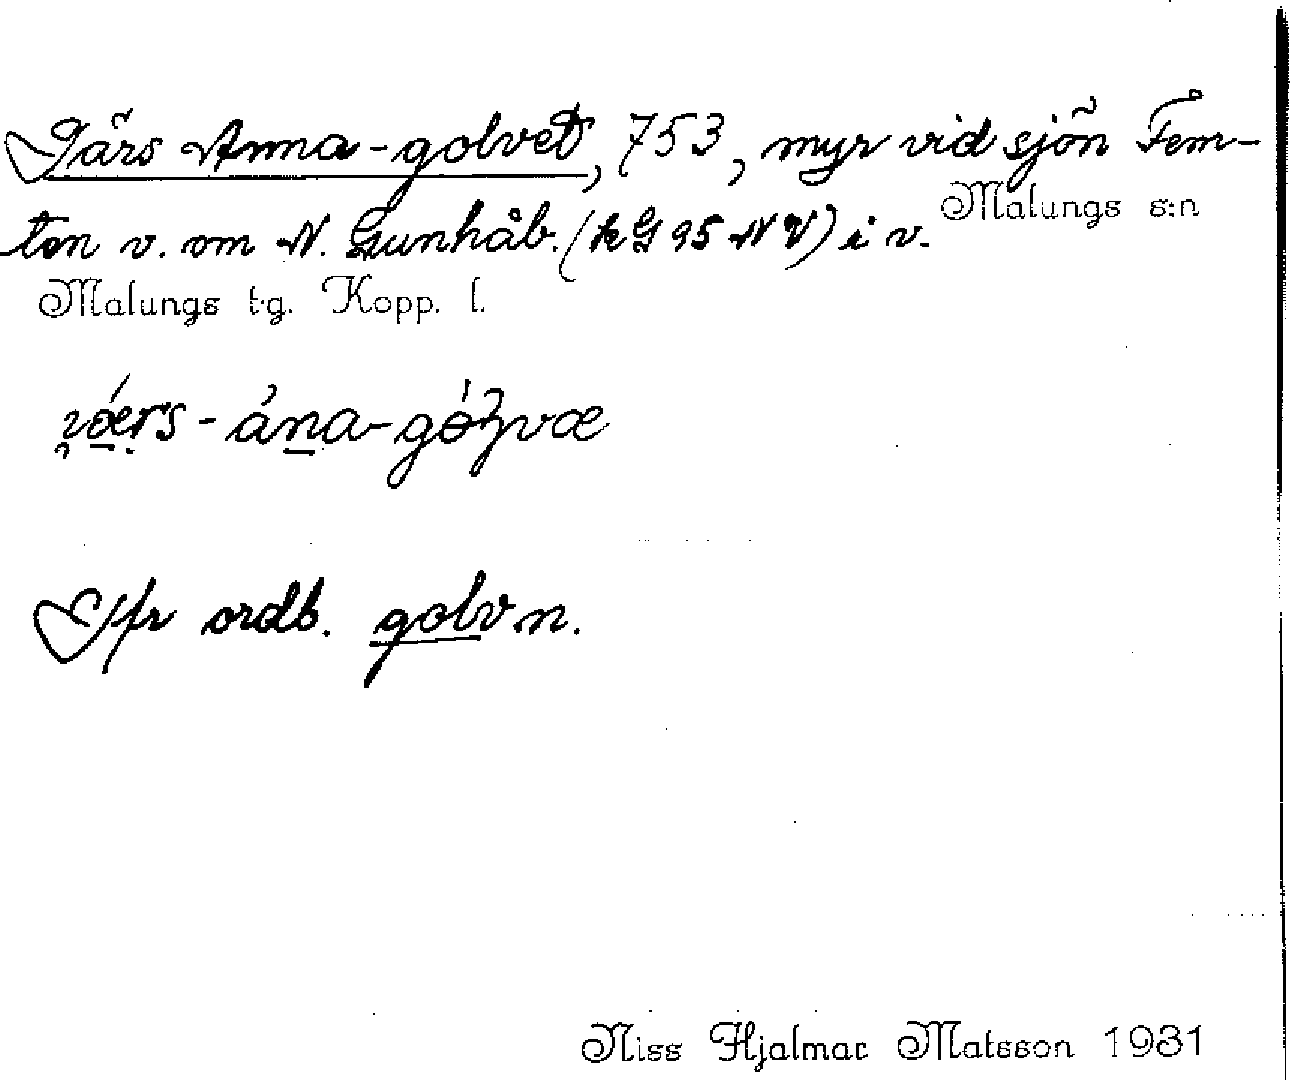 Järs Anna-golvet, 753, myr vid sjön Fem-
ten v. om N. Gunhåb. (kG 95 NV) i v. Malungs s:n
Malungs t.g. Kopp. l.
Jfr ordb. golv n.
Niss Hjalmar Matsson 1931